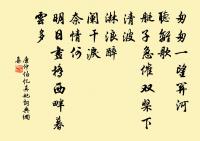 匆匆一望關河
聽離歌
艇子急催雙槳下
清波
淋浪醉
闌干淚
奈情何
明日畫橋西畔暮
雲多
康仲伯忆真妃詞典網
集